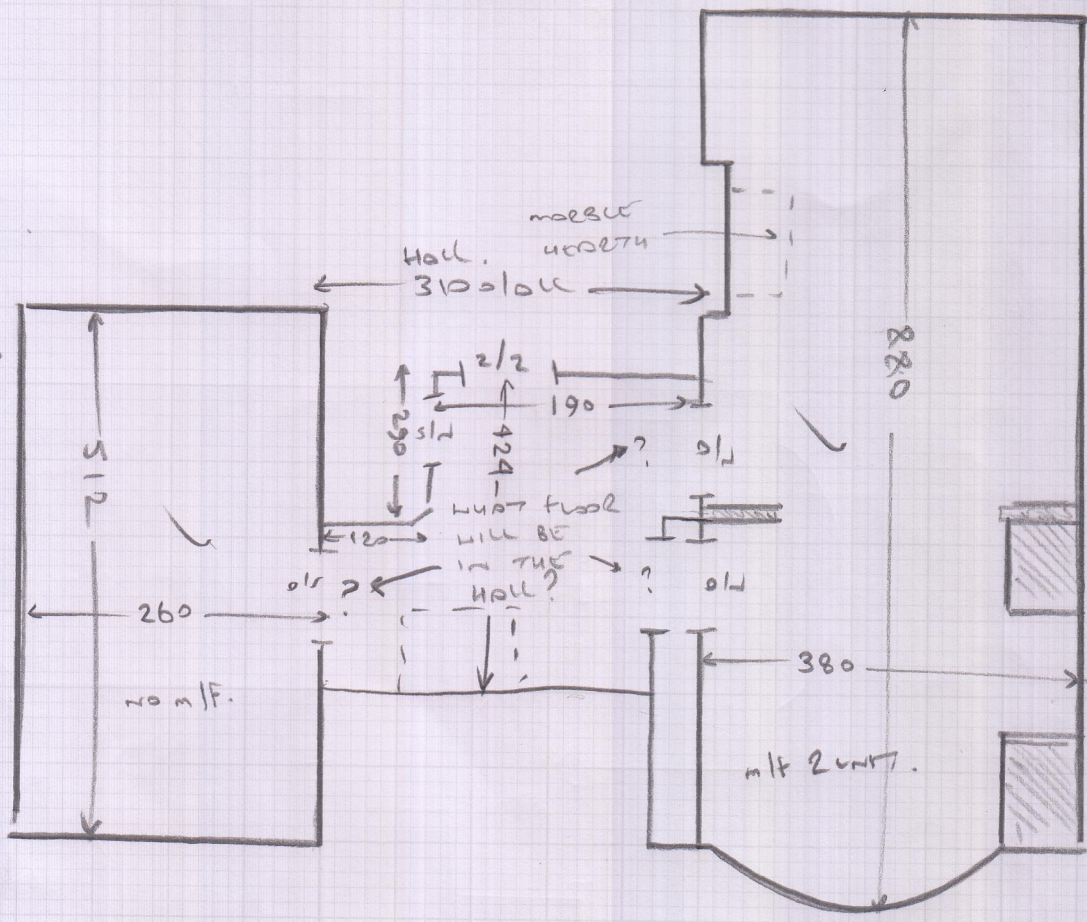 MARBLE
HEARTH
HALL.
310 O/ALL
2/2
190
290
424
880
512
?
WHAT FLOOR
WILL BE
IN THE
HALL?
120
?
?
260
380
NO M/F.
M/F 2 UNIT.